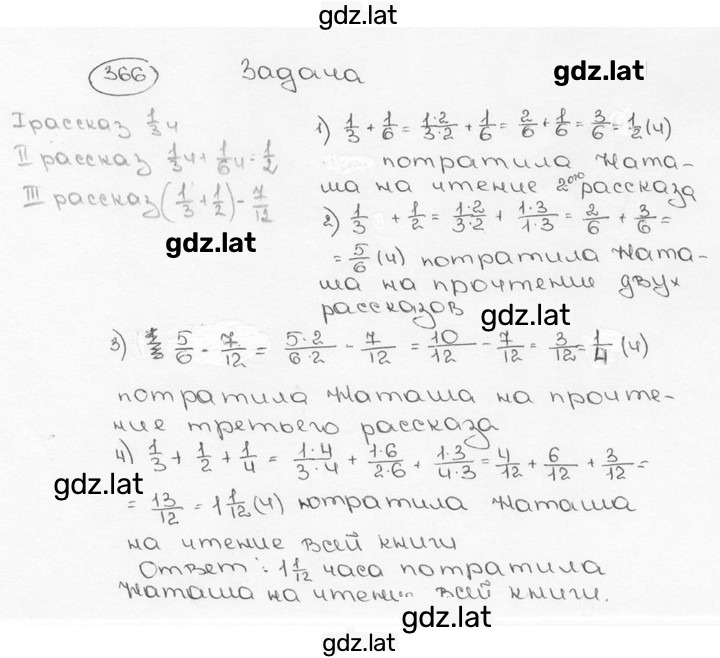 gdz.lat
366 Задача
gdz.lat
I рассказ 1/3 ч
II рассказ 1/3 ч + 1/6 ч = 1/2
III рассказ (1/3 + 1/2) - 7/12
gdz.lat
1) 1/3 + 1/6 = 1·2/3·2 + 1/6 = 2/6 + 1/6 = 3/6 = 1/2 (ч)
потратила Ната-
ша на чтение 2ого рассказа
2) 1/3 + 1/2 = 1·2/3·2 + 1·3/1·3 = 2/6 + 3/6 =
= 5/6 (ч) потратила Ната-
ша на прочтение двух
рассказов
gdz.lat
3) 5/6 - 7/12 = 5·2/6·2 - 7/12 = 10/12 - 7/12 = 3/12 = 1/4 (ч)
потратила Наташа на прочте-
ние третьего рассказа
4) 1/3 + 1/2 + 1/4 = 1·4/3·4 + 1·6/2·6 + 1·3/4·3 = 4/12 + 6/12 + 3/12 =
gdz.lat
= 13/12 = 1 1/12 (ч) потратила Наташа
на чтение всей книги
Ответ: 1 1/12 часа потратила
Наташа на чтение всей книги.
gdz.lat
gdz.lat